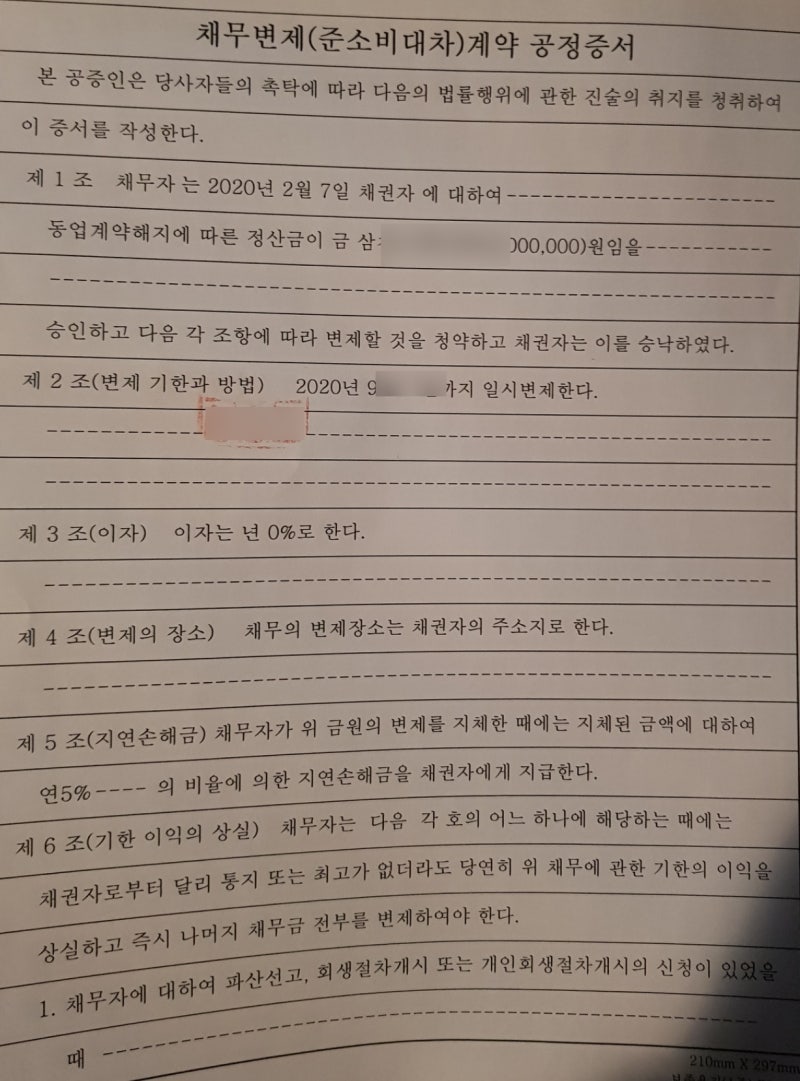 채무변제(준소비대차)계약 공정증서
본 공증인은 당사자들의 촉탁에 따라 다음의 법률행위에 관한 진술의 취지를 청취하여
이 증서를 작성한다.
제 1 조 채무자 는 2020년 2월 7일 채권자 에 대하여-----------------------
동업계약해지에 따른 정산금이 금 삼 000,000)원임을-----------
------------------------------------------------------------
승인하고 다음 각 조항에 따라 변제할 것을 청약하고 채권자는 이를 승낙하였다.
제 2 조(변제 기한과 방법) 2020년 9 까지 일시변제한다.
------------------------------------------------------------
------------------------------------------------------------
제 3 조(이자) 이자는 년 0%로 한다.
------------------------------------------------------------
제 4 조(변제의 장소) 채무의 변제장소는 채권자의 주소지로 한다.
------------------------------------------------------------
제 5 조(지연손해금) 채무자가 위 금원의 변제를 지체한 때에는 지체된 금액에 대하여
연5%---- 의 비율에 의한 지연손해금을 채권자에게 지급한다.
제 6 조(기한 이익의 상실) 채무자는 다음 각 호의 어느 하나에 해당하는 때에는
채권자로부터 달리 통지 또는 최고가 없더라도 당연히 위 채무에 관한 기한의 이익을
상실하고 즉시 나머지 채무금 전부를 변제하여야 한다.
1. 채무자에 대하여 파산선고, 회생절차개시 또는 개인회생절차개시의 신청이 있었을
때 -------------------------------------------------------
210mm X 297mm